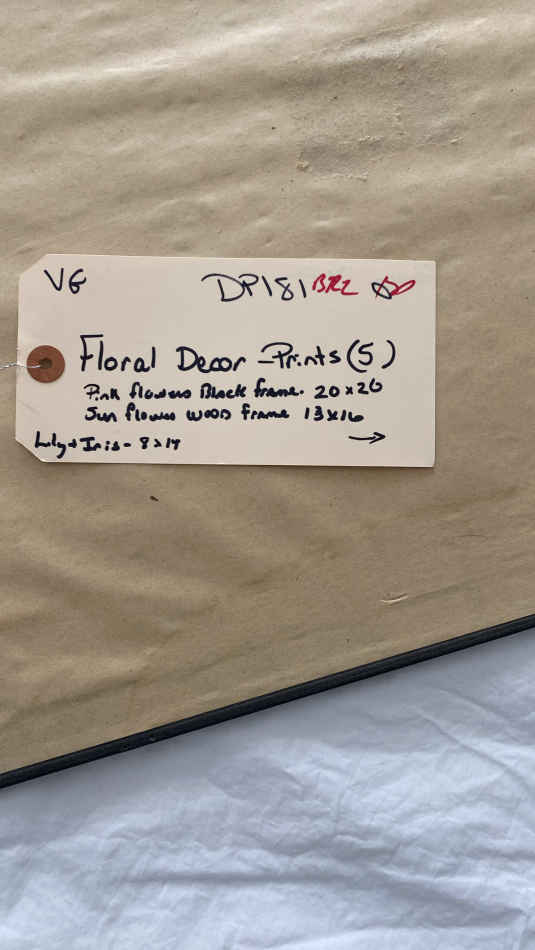 VG DP181 BR2
Floral Decor - Prints (5)
Pink flowers Black frame. 20x20
Sun flowers wood frame 13x16
Lily + Iris - 8x14 →